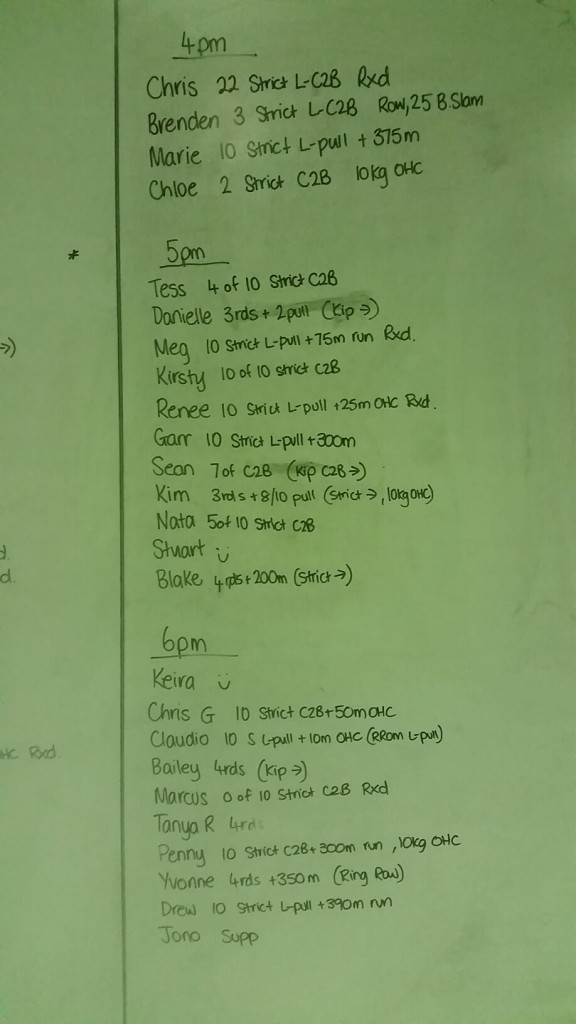 4pm
Chris 22 Strict L-C2B Rxd
Brenden 3 Strict L-C2B Row, 25 B.Slam
Marie 10 Strict L-pull + 375m
Chloe 2 Strict C2B 10kg OHC
*
5pm
Tess 4 of 10 Strict C2B
Danielle 3rds + 2 pull (Kip →)
→)
Meg 10 Strict L-pull + 75m run Rxd.
Kirsty 10 of 10 strict C2B
Renee 10 Strict L-pull +25m OHC Rxd.
Garr 10 Strict L-pull +300m
Sean 7 of C2B (Kip C2B →)
Kim 3rds + 8/10 pull (Strict →, 10kg OHC)
Nata 5 of 10 Strict C2B
Stuart ü
d.
Blake 4rds + 200m (Strict →)
6pm
Keira ü
Chris G 10 Strict C2B + 50m OHC
Claudio 10 S L-pull + 10m OHC (RRom L-pull)
HC Rxd.
Bailey 4rds (Kip →)
Marcus 0 of 10 Strict C2B Rxd
Tanya R 4rds
Penny 10 Strict C2B + 300m run, 10kg OHC
Yvonne 4rds +350m (Ring Row)
Drew 10 Strict L-pull +390m run
Jono Supp